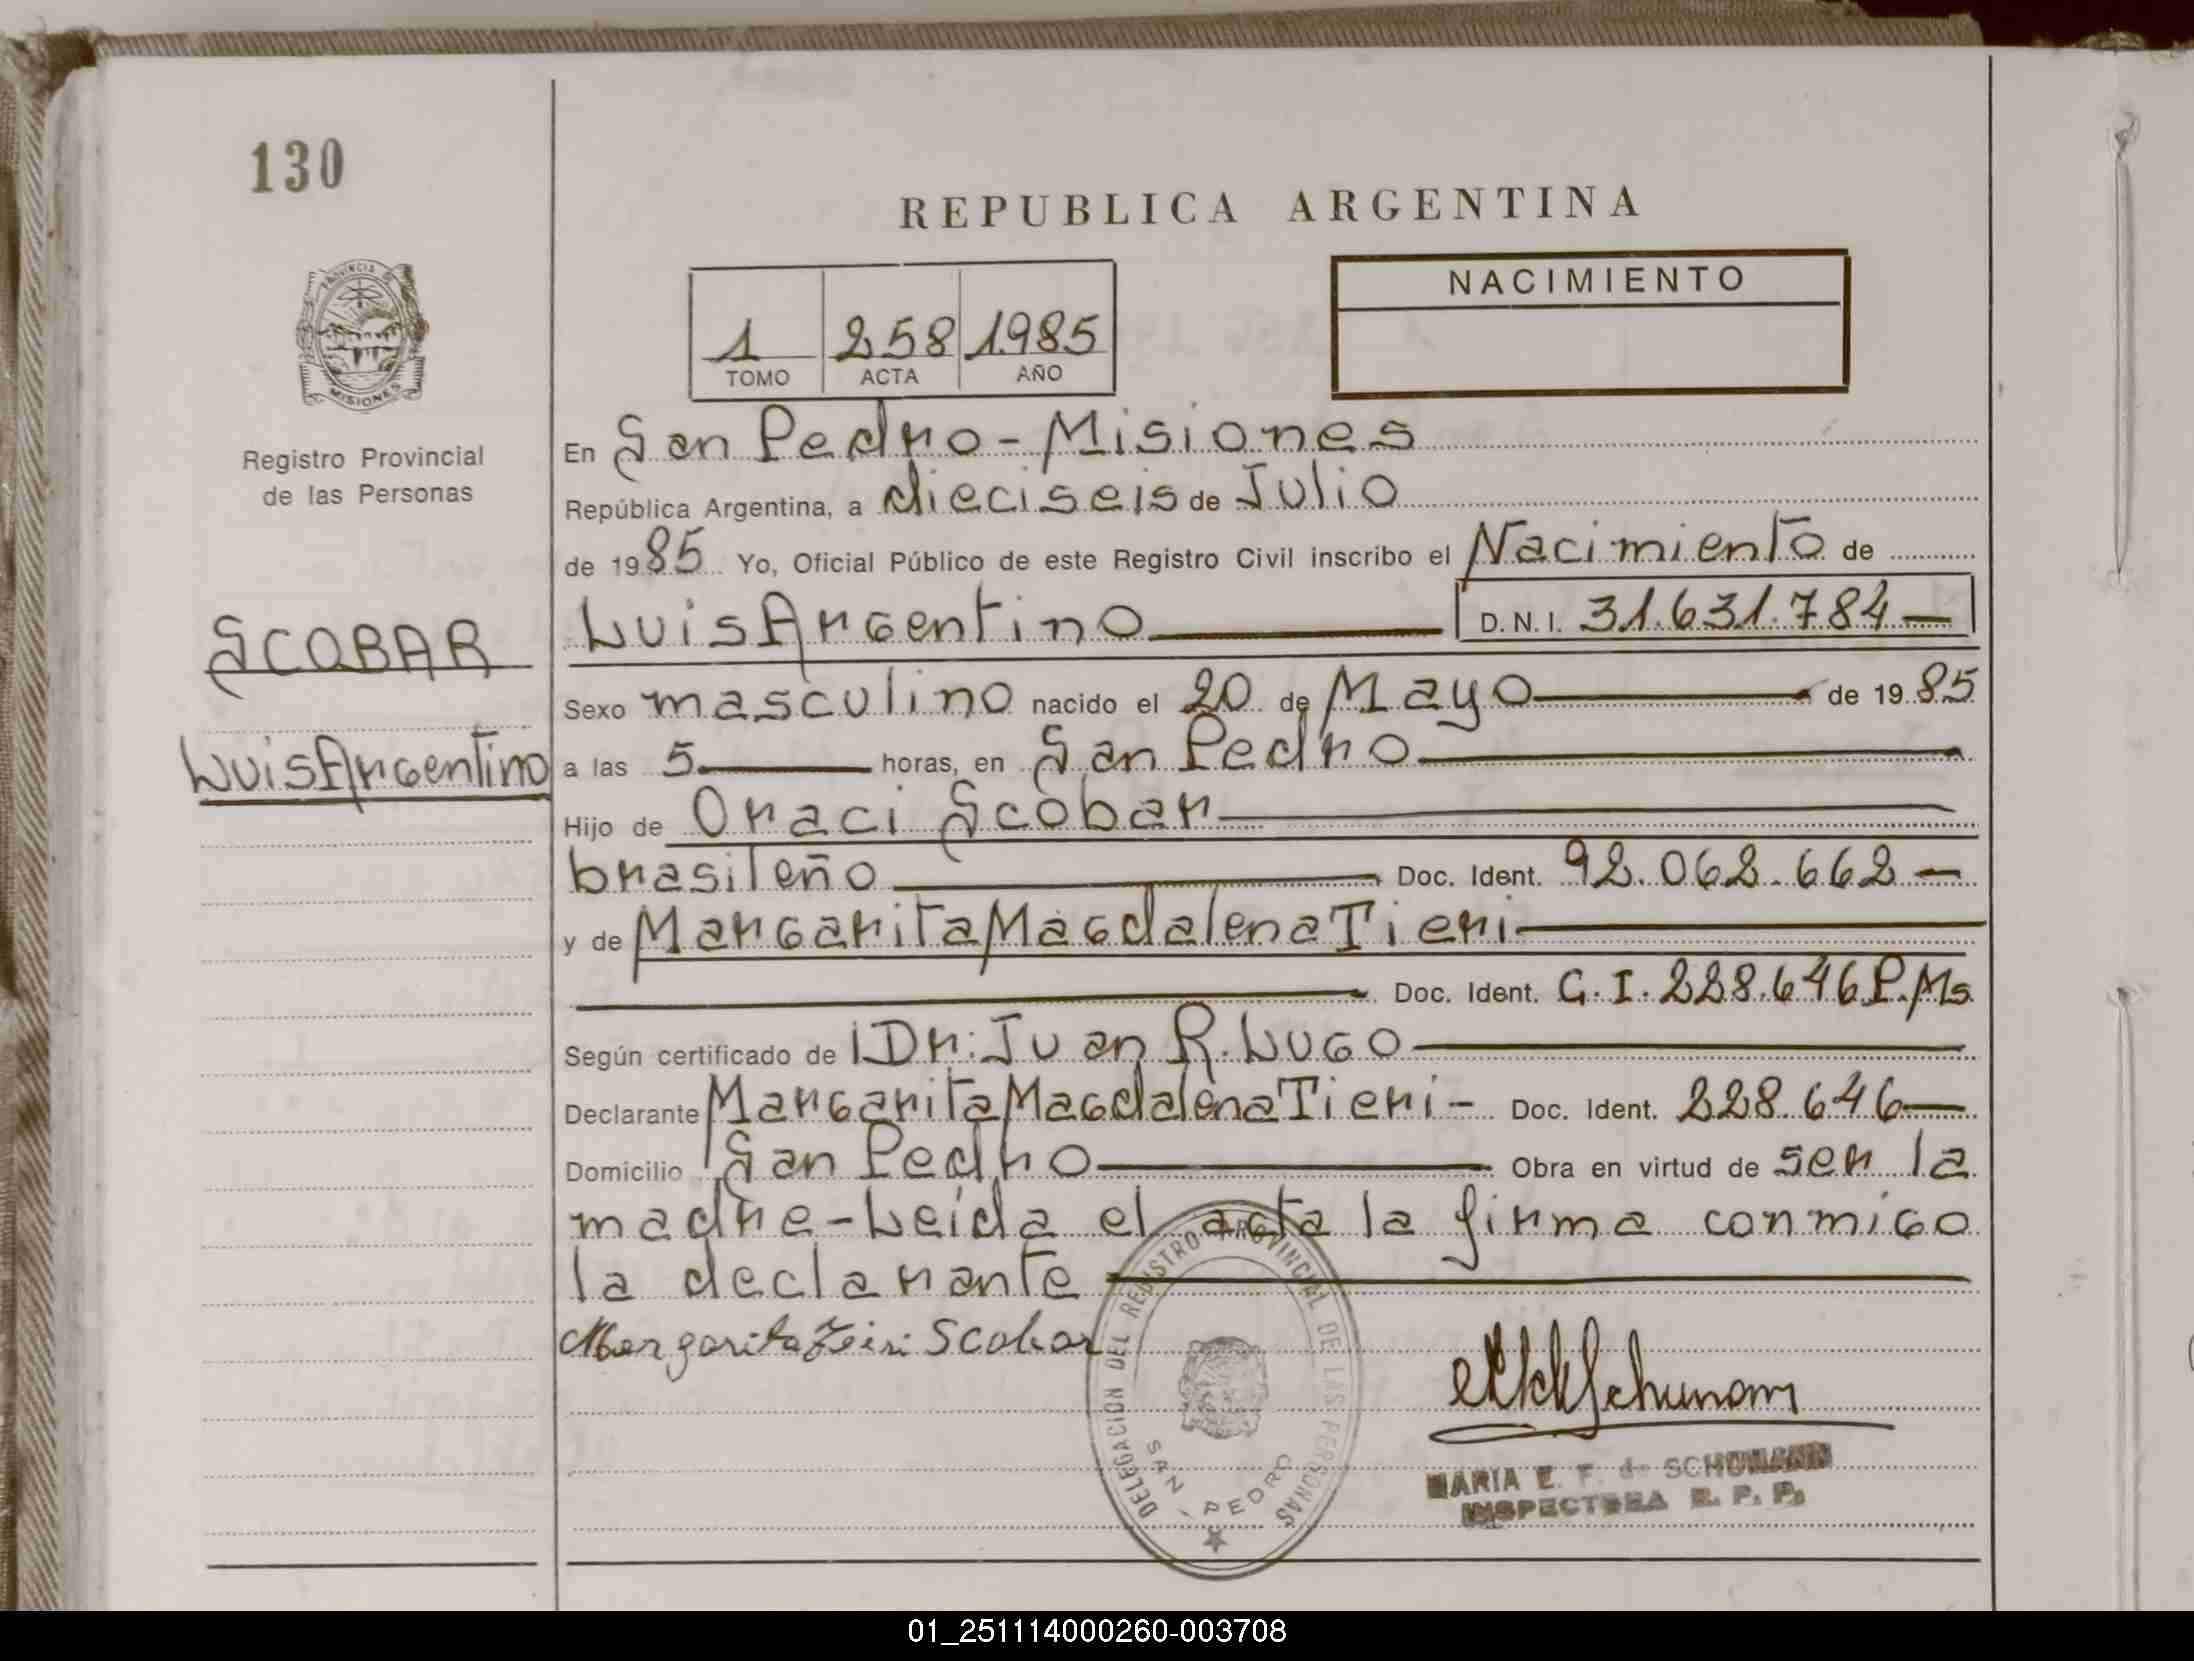 130
REPUBLICA ARGENTINA
PROVINCIA DE
MISIONES
Registro Provincial
de las Personas
1 258 1985
TOMO ACTA AÑO
NACIMIENTO
En San Pedro - Misiones
República Argentina, a dieciseis de Julio
de 1985 Yo, Oficial Público de este Registro Civil inscribo el Nacimiento de
SCOBAR
Luis Argentino D.N.I. 31.631.784
Sexo masculino nacido el 20 de Mayo de 1985
Luis Argentino
a las 5 horas, en San Pedro
Hijo de Oraci Scobar
brasileño Doc. Ident. 92.062.662
y de Margarita Magdalena Tieri
Doc. Ident. C.I. 228.646 P.Ms
Según certificado de Dr: Juan R. Lugo
Declarante Margarita Magdalena Tieri - Doc. Ident. 228.646
Domicilio San Pedro Obra en virtud de ser la
madre - Leída el acta la firma conmigo
la declarante
Margarita Scobar
DELEGACION DEL REGISTRO PROVINCIAL DE LAS PERSONAS
SAN PEDRO
Schumann
MARIA E. F. de SCHUMANN
INSPECTORA R. P. P.
01_251114000260-003708